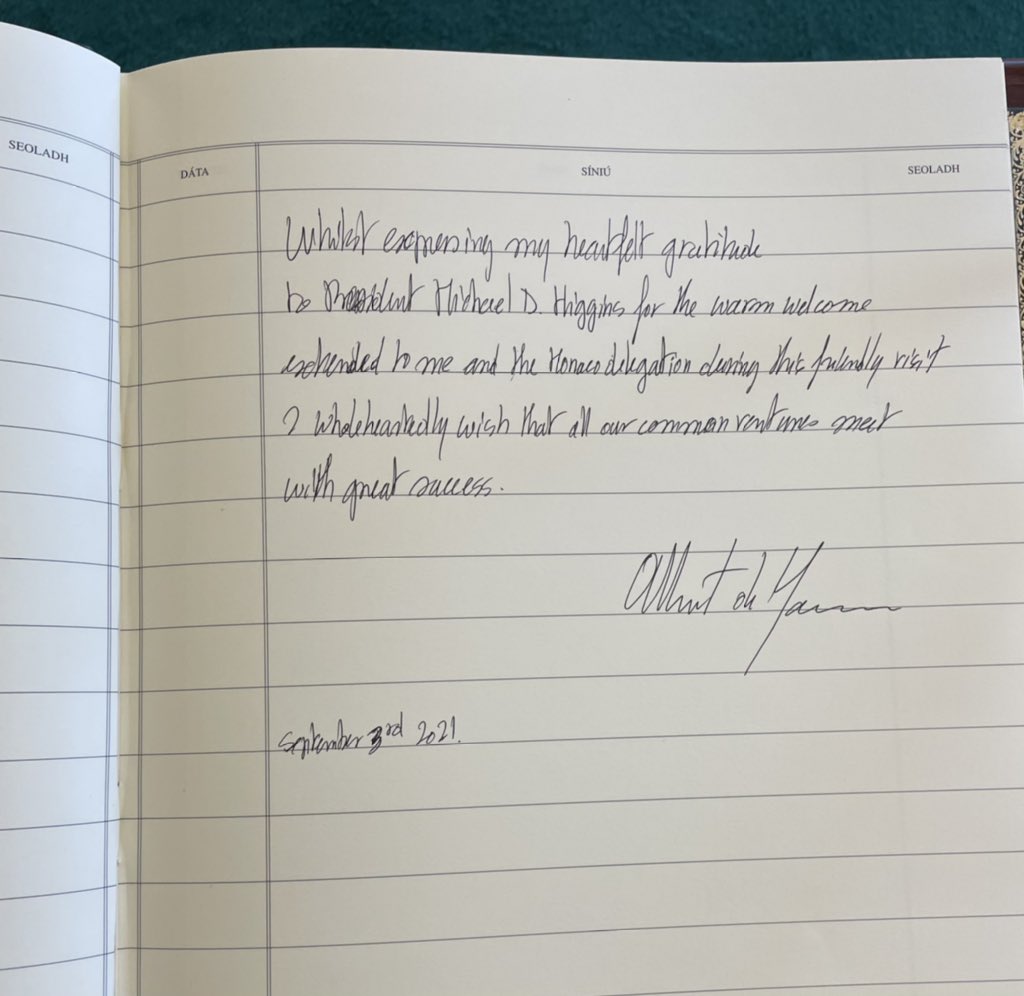 SEOLADH
DÁTA SÍNIÚ SEOLADH
Whilst expressing my heartfelt gratitude
to President Michael D. Higgins for the warm welcome
extended to me and the Monaco delegation during this friendly visit
I wholeheartedly wish that all our common ventures meet
with great success.
Albert de Monaco
September 3rd 2021.